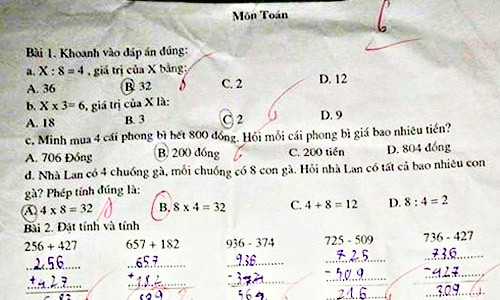 Môn Toán
6
Bài 1. Khoanh vào đáp án đúng:
a. X : 8 = 4 , giá trị của X bằng:
A. 36 B. 32 C. 2 D. 12
b. X x 3= 6, giá trị của X là:
A. 18 B. 3 C. 2 D. 9
c. Minh mua 4 cái phong bì hết 800 đồng. Hỏi mỗi cái phong bì giá bao nhiêu tiền?
A. 706 Đồng B. 200 đồng C. 200 tiền D. 804 đồng
d. Nhà Lan có 4 chuồng gà, mỗi chuồng có 8 con gà. Hỏi nhà Lan có tất cả bao nhiêu con
gà? Phép tính đúng là:
A. 4 x 8 = 32 B. 8 x 4 = 32 C. 4 + 8 = 12 D. 8 : 4 = 2
Bài 2. Đặt tính và tính
256 + 427 657 + 182 936 - 374 725 - 509 736 - 427
256 657 936 725 736
+427 +182 -374 -509 -427
216 309